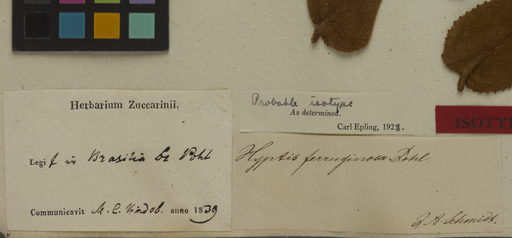 Herbarium Zuccarinii.
Legi f in Brasilia Cl Pohl
Communicavit M. C. Vindob. anno 1839
Probable isotype
As determined.
Carl Epling, 1928.
ISOTY
Hyptis ferruginosa Pohl.
J. A. Schmidt.